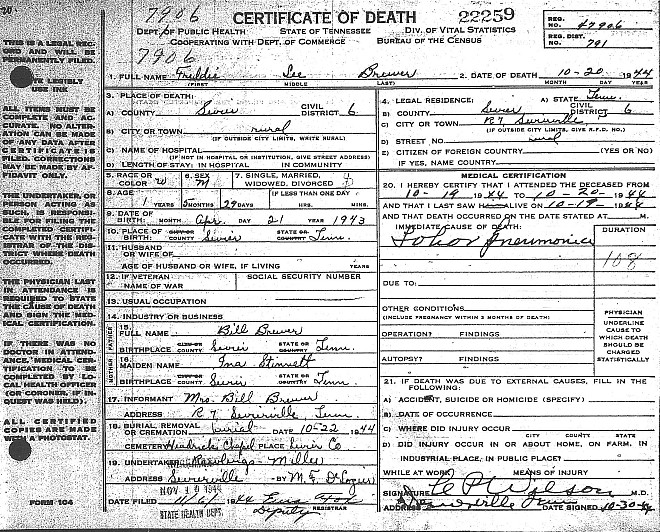 20.
7906
CERTIFICATE OF DEATH
22259
DEPT. OF PUBLIC HEALTH STATE OF TENNESSEE DIV. OF VITAL STATISTICS
COOPERATING WITH DEPT. OF COMMERCE BUREAU OF THE CENSUS
7906
REG. NO. 47906
REG. DIST. NO. 791
THIS IS A LEGAL RECORD AND WILL BE PERMANENTLY FILED.
LEGIBLY USE INK
ALL ITEMS MUST BE COMPLETE AND ACCURATE. NO ALTERATION CAN BE MADE OF ANY DATA AFTER CERTIFICATE IS FILED. CORRECTIONS MAY BE MADE BY AFFIDAVIT ONLY.
THE UNDERTAKER, OR PERSON ACTING AS SUCH, IS RESPONSIBLE FOR FILING THE COMPLETED CERTIFICATE WITH THE REGISTRAR OF THE DISTRICT WHERE DEATH OCCURRED.
THE PHYSICIAN LAST IN ATTENDANCE IS REQUIRED TO STATE THE CAUSE OF DEATH AND SIGN THE MEDICAL CERTIFICATION.
IF THERE WAS NO DOCTOR IN ATTENDANCE, MEDICAL CERTIFICATION TO BE COMPLETED BY LOCAL HEALTH OFFICER (OR CORONER, IF INQUEST WAS HELD).
ALL CERTIFIED COPIES ARE MADE WITH A PHOTOSTAT.
FORM 104
1. FULL NAME Lee Brewer 2. DATE OF DEATH 10-20 1944
(FIRST) MIDDLE LAST) MONTH DAY YEAR
3. PLACE OF DEATH:
A) COUNTY Sevier CIVIL DISTRICT 6
B) CITY OR TOWN rural
(IF OUTSIDE CITY LIMITS, WRITE RURAL)
C) NAME OF HOSPITAL
(IF NOT IN HOSPITAL OR INSTITUTION, GIVE STREET ADDRESS)
D) LENGTH OF STAY: IN HOSPITAL IN COMMUNITY
4. LEGAL RESIDENCE: A) STATE Tenn.
B) COUNTY Sevier CIVIL DISTRICT 6
C) CITY OR TOWN R7 Sevierville
(IF OUTSIDE CITY LIMITS, GIVE R.F.D. NO.)
D) STREET NO. rural
E) CITIZEN OF FOREIGN COUNTRY (YES OR NO)
IF YES, NAME COUNTRY
5. RACE OR COLOR W 6. SEX M 7. SINGLE, MARRIED, WIDOWED, DIVORCED
8. AGE 1 YEARS 5 MONTHS 29 DAYS IF LESS THAN ONE DAY HRS. MINS.
9. DATE OF BIRTH MONTH Apr. DAY 21 YEAR 1943
10. PLACE OF BIRTH: CITY OR COUNTY Sevier STATE OR COUNTRY Tenn.
11. HUSBAND OR WIFE OF
AGE OF HUSBAND OR WIFE, IF LIVING YEARS
12. IF VETERAN NAME OF WAR SOCIAL SECURITY NUMBER
13. USUAL OCCUPATION
14. INDUSTRY OR BUSINESS
FATHER
15. FULL NAME Bill Brewer
BIRTHPLACE CITY OR COUNTY Sevier STATE OR COUNTRY Tenn.
MOTHER
16. MAIDEN NAME Ina Stinnett
BIRTHPLACE CITY OR COUNTY Sevier STATE OR COUNTRY Tenn.
17. INFORMANT Mrs. Bill Brewer
ADDRESS R 7 Sevierville Tenn
18. BURIAL, REMOVAL OR CREMATION burial DATE 10-22 1944
CEMETERY Hendricks Chapel PLACE Sevier Co
19. UNDERTAKER Rawlings - Miller
ADDRESS Sevierville BY M. F.
NOV 10 1944
DATE FILED 1944
REGISTRAR
Deputy
STATE HEALTH DEPT.
MEDICAL CERTIFICATION
20. I HEREBY CERTIFY THAT I ATTENDED THE DECEASED FROM
10-19 1944 TO 10-20-1944
AND THAT I LAST SAW H ALIVE ON 10-19-1944
AND THAT DEATH OCCURRED ON THE DATE STATED AT M.
IMMEDIATE CAUSE OF DEATH: DURATION
Lobar Pneumonia
108
DUE TO:
OTHER CONDITIONS:
(INCLUDE PREGNANCY WITHIN 3 MONTHS OF DEATH)
OPERATION? FINDINGS
AUTOPSY? FINDINGS
PHYSICIAN
UNDERLINE CAUSE TO WHICH DEATH SHOULD BE CHARGED STATISTICALLY
21. IF DEATH WAS DUE TO EXTERNAL CAUSES, FILL IN THE FOLLOWING:
A) ACCIDENT, SUICIDE OR HOMICIDE (SPECIFY)
B) DATE OF OCCURRENCE
C) WHERE DID INJURY OCCUR
CITY COUNTY STATE
D) DID INJURY OCCUR IN OR ABOUT HOME, ON FARM, IN
INDUSTRIAL PLACE, IN PUBLIC PLACE?
WHILE AT WORK MEANS OF INJURY
SIGNATURE P Wilson M.D.
ADDRESS Sevierville Tenn DATE SIGNED 10-30-44